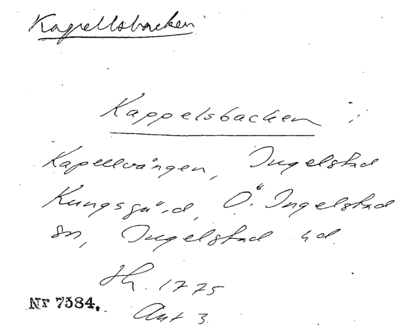 Kapellsbacken
Kappelsbacken
Kapellvången, Ingelstad
Kungsgård, Ö. Ingelstad
sn, Ingelstad hd.
Sh. 1775
Akt 3
Nr 7384.